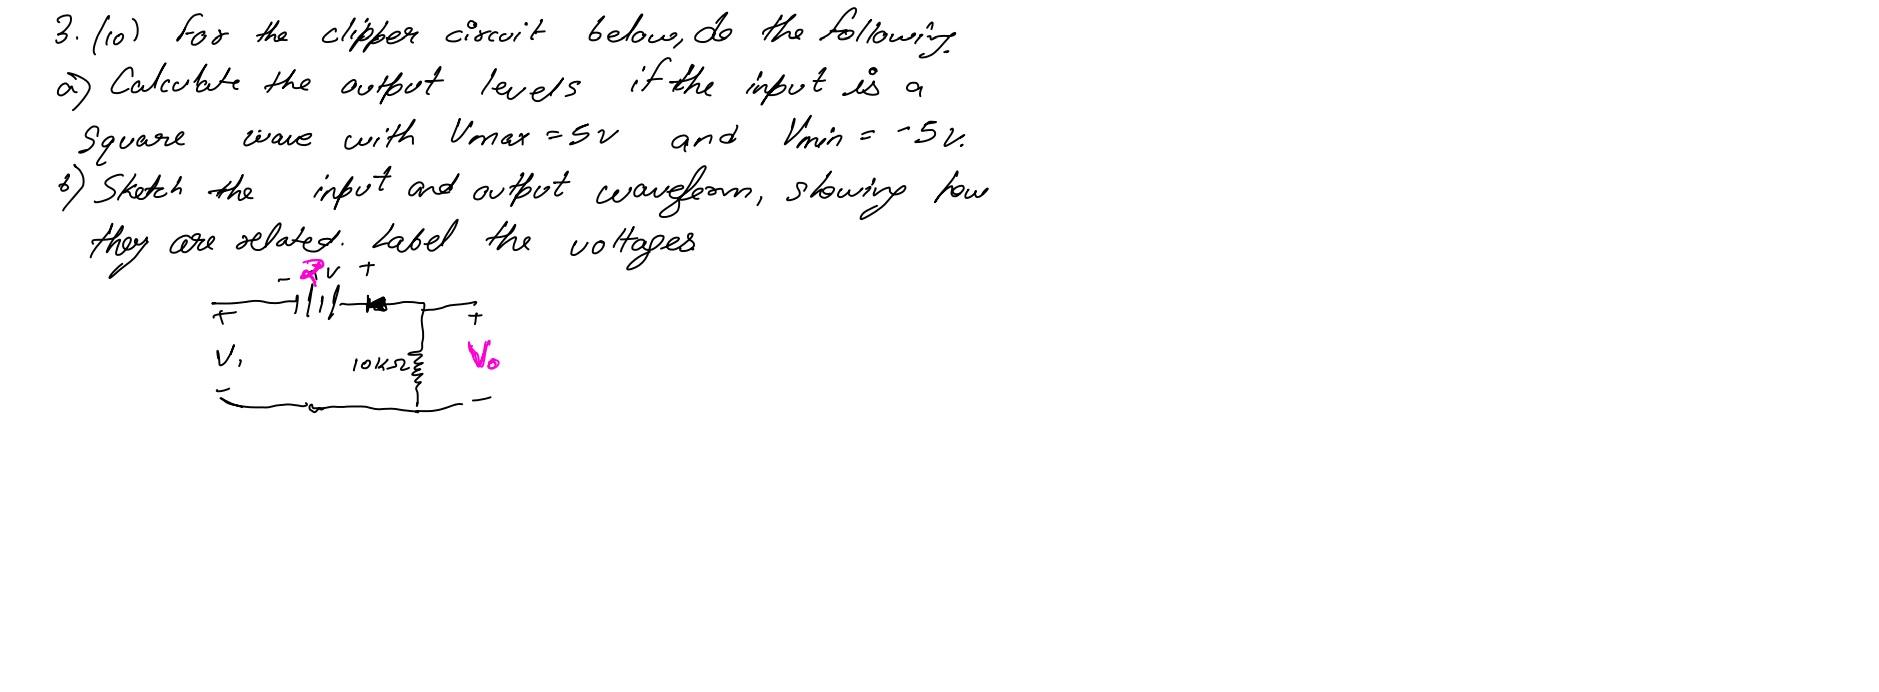 3. (10) For the clipper circuit below, do the following.
a) Calculate the output levels if the input is a
Square wave with Vmax = 5v and Vmin = -5v.
b) Sketch the input and output waveform, showing how
they are related. Label the voltages
- 2v +
+ +
V1 10KΩ Vo
- -